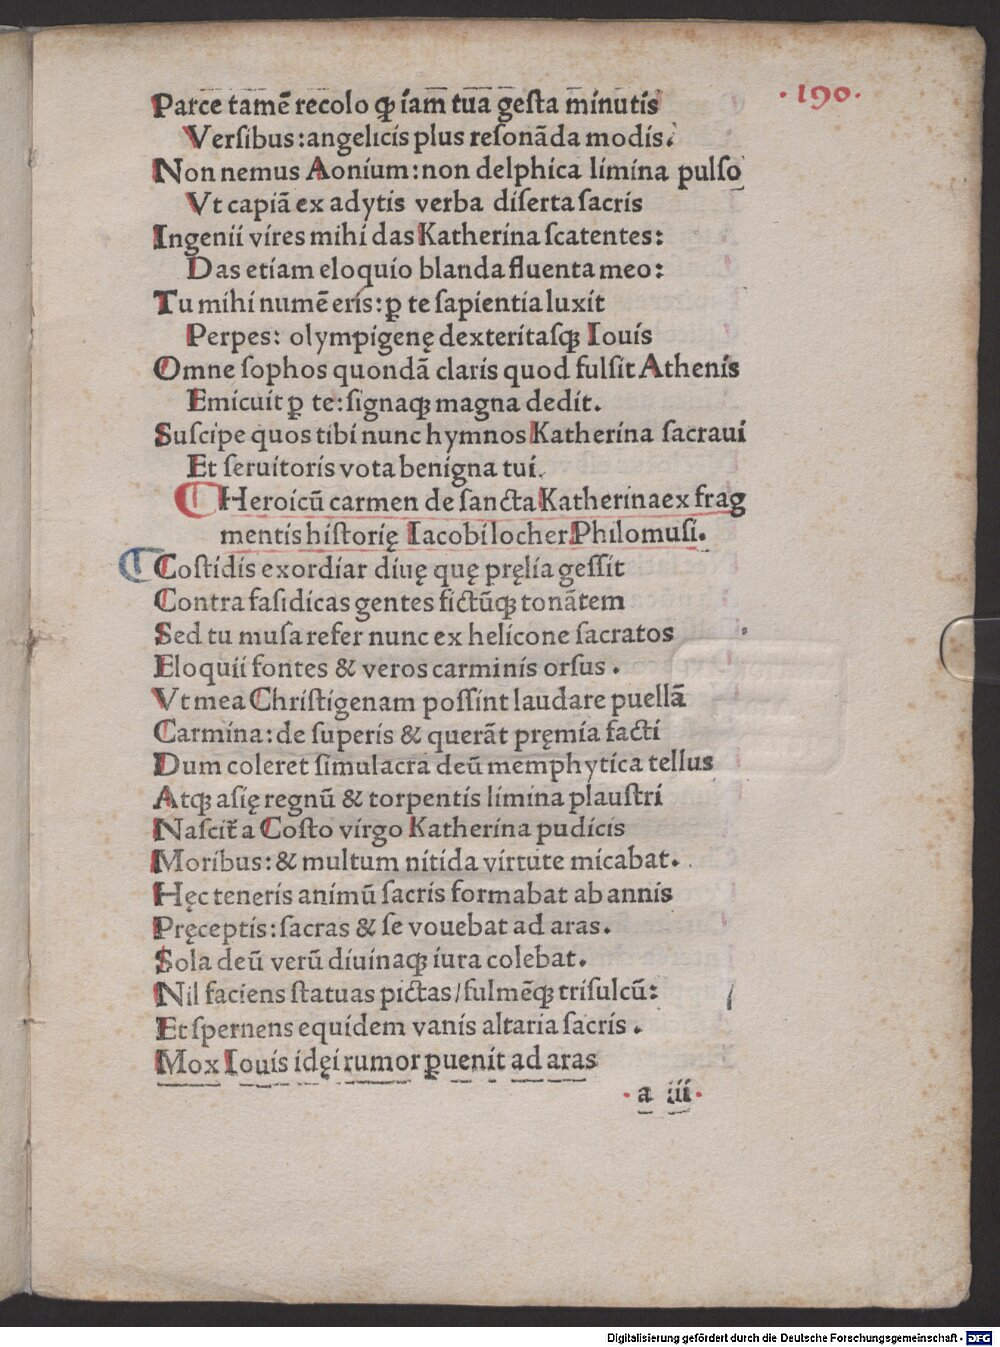 ·190·
Parce tamē recolo ꝙ iam tua gesta minutis
Versibus: angelicis plus resonāda modis.
Non nemus Aonium: non delphica limina pulso
Vt capiā ex adytis verba diserta sacris
Ingenii vires mihi das Katherina scatentes:
Das etiam eloquio blanda fluenta meo:
Tu mihi numē eris: ꝑ te sapientia luxit
Perpes: olympigenę dexteritasqꝫ Iouis
Omne sophos quondā claris quod fulsit Athenis
Emicuit ꝑ te: signaqꝫ magna dedit.
Suscipe quos tibi nunc hymnos Katherina sacraui
Et seruitoris vota benigna tui.
¶ Heroicū carmen de sancta Katherina ex frag
mentis historię Iacobi locher Philomusi.
¶ Costidis exordiar diuę quę pręlia gessit
Contra fasidicas gentes fictūqꝫ tonātem
Sed tu musa refer nunc ex helicone sacratos
Eloquii fontes & veros carminis orsus.
Vt mea Christigenam possint laudare puellā
Carmina: de superis & querāt pręmia facti
Dum coleret simulacra deū memphytica tellus
Atqꝫ asię regnū & torpentis limina plaustri
Nascit̄ a Costo virgo Katherina pudicis
Moribus: & multum nitida virtute micabat.
Hęc teneris animū sacris formabat ab annis
Pręceptis: sacras & se vouebat ad aras.
Sola deū verū diuinaqꝫ iura colebat.
Nil faciens statuas pictas/fulmēqꝫ trisulcū:
Et spernens equidem vanis altaria sacris.
Mox Iouis idęi rumor ꝑuenit ad aras
·a iii·
Digitalisierung gefördert durch die Deutsche Forschungsgemeinschaft - DFG